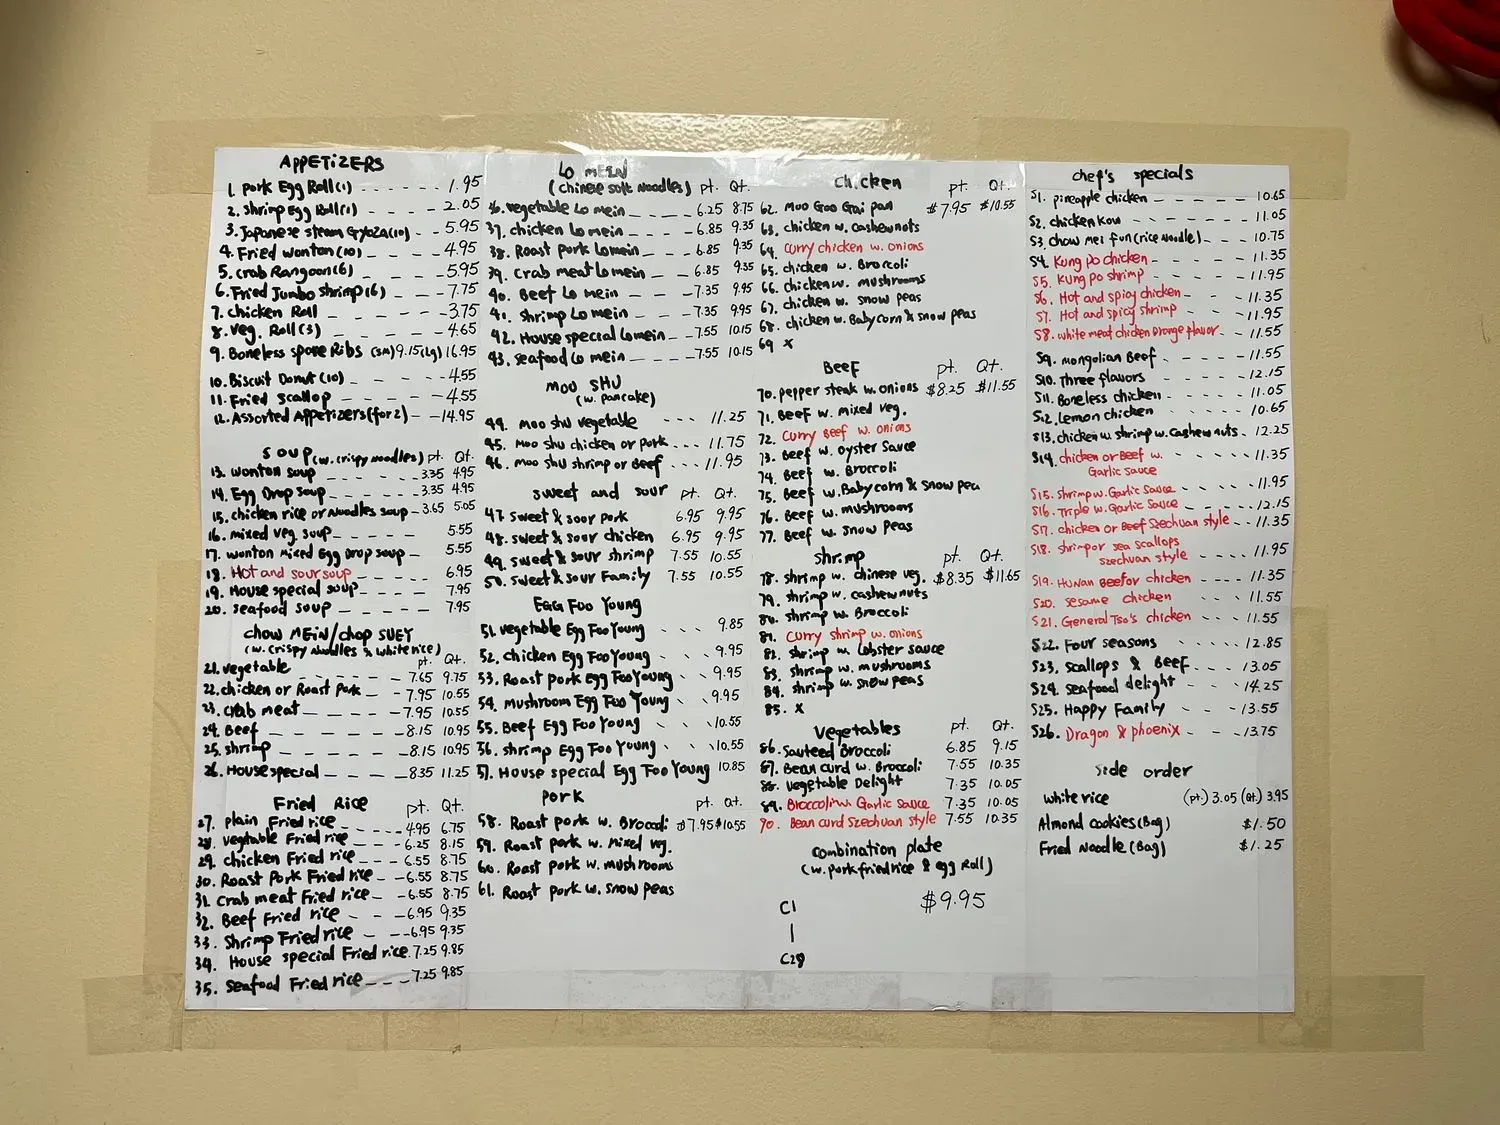 APPETIZERS
1. pork Egg Roll(1) - - - - - - 1.95
2. shrimp Egg Roll(1) - - - - 2.05
3. Japanese steam Gyoza(10) - 5.95
4. Fried wonton(10) - - - 4.95
5. crab Rangoon(6) - - - 5.95
6. Fried Jumbo shrimp(6) - - - 7.75
7. chicken Roll - - - - - 3.75
8. veg. Roll(3) - - - - - 4.65
9. Boneless spare Ribs (sm) 9.15 (Lg) 16.95
10. Biscuit Donut(10) - - - - 4.55
11. Fried scallop - - - - - 4.55
12. Assorted Appetizers(for 2) - - 14.95
soup (w. crispy noodles) pt. Qt.
13. wonton soup - - - - 3.35 4.95
14. Egg Drop soup - - - - 3.35 4.95
15. chicken rice or Noodles soup - 3.65 5.05
16. mixed veg soup - - - - 5.55
17. wonton mixed Egg Drop soup - - 5.55
18. Hot and sour soup - - - - 6.95
19. House special soup - - - - 7.95
20. seafood soup - - - - 7.95
chow MEIN/chop SUEY
(w. crispy Noodles & white rice)
pt. Qt.
21. vegetable - - - - 7.65 9.75
22. chicken or Roast pork - - 7.95 10.55
23. crab meat - - - - 7.95 10.55
24. Beef - - - - - 8.15 10.95
25. shrimp - - - - - 8.15 10.95
26. House special - - - - 8.35 11.25
Fried Rice pt. Qt.
27. plain Fried rice - - - - 4.95 6.75
28. vegetable Fried rice - - - 6.25 8.15
29. chicken Fried rice - - 6.55 8.75
30. Roast Pork Fried rice - - 6.55 8.75
31. crab meat Fried rice - - 6.55 8.75
32. Beef Fried rice - - - 6.95 9.35
33. Shrimp Fried rice - - - 6.95 9.35
34. House special Fried rice. 7.25 9.85
35. Seafood Fried rice - - - 7.25 9.85
Lo MEIN
(chinese soft Noodles) pt. Qt.
36. vegetable Lo mein - - - 6.25 8.75
37. chicken Lo mein - - - 6.85 9.35
38. Roast pork Lo mein - - 6.85 9.35
39. crab meat Lo mein - - 6.85 9.35
40. Beef Lo mein - - - 7.35 9.95
41. shrimp Lo mein - - - 7.35 9.95
42. House special Lo mein - - 7.55 10.15
43. seafood Lo mein - - - 7.55 10.15
MOO SHU
(w. pancake)
44. moo shu vegetable - - - 11.25
45. moo shu chicken or pork - - - 11.75
46. moo shu shrimp or Beef - - - 11.95
sweet and sour pt. Qt.
47. sweet & sour pork 6.95 9.95
48. sweet & sour chicken 6.95 9.95
49. sweet & sour shrimp 7.55 10.55
50. sweet & sour Family 7.55 10.55
EGG Foo Young
51. vegetable Egg Foo Young - - 9.85
52. chicken Egg Foo Young - - 9.95
53. Roast pork Egg Foo Young - - 9.95
54. mushroom Egg Foo Young - - 9.95
55. Beef Egg Foo Young - - - 10.55
56. shrimp Egg Foo Young - - - 10.55
57. House special Egg Foo Young 10.85
pork pt. Qt.
58. Roast pork w. Broccoli $7.95 $10.55
59. Roast pork w. mixed veg.
60. Roast pork w. mushrooms
61. Roast pork w. snow peas
chicken pt. Qt.
62. Moo Goo Gai pan $7.95 $10.55
63. chicken w. cashewnuts
64. curry chicken w. onions
65. chicken w. Broccoli
66. chicken w. mushrooms
67. chicken w. snow peas
68. chicken w. Baby corn & snow peas
69 x
Beef pt. Qt.
70. pepper steak w. onions $8.25 $11.55
71. Beef w. mixed veg.
72. curry Beef w. onions
73. Beef w. oyster Sauce
74. Beef w. Broccoli
75. Beef w. Baby corn & snow pea
76. Beef w. mushrooms
77. Beef w. snow peas
shrimp pt. Qt.
78. shrimp w. chinese veg. $8.35 $11.65
79. shrimp w. cashewnuts
80. shrimp w. Broccoli
81. curry shrimp w. onions
82. shrimp w. Lobster sauce
83. shrimp w. mushrooms
84. shrimp w. snow peas
85. x
vegetables pt. Qt.
86. Sauteed Broccoli 6.85 9.15
87. Bean curd w. Broccoli 7.55 10.35
88. vegetable Delight 7.35 10.05
89. Broccoli w. Garlic sauce 7.35 10.05
90. Bean curd szechuan style 7.55 10.35
combination plate
(w. pork fried rice & egg Roll)
$9.95
C1
|
C28
chef's specials
S1. pineapple chicken - - - - 10.65
S2. chicken kow - - - - - 11.05
S3. chow mei fun(rice Noodle) - - - 10.75
S4. Kung po chicken - - - - 11.35
S5. Kung po shrimp - - - - 11.95
S6. Hot and spicy chicken - - - 11.35
S7. Hot and spicy shrimp - - - 11.95
S8. white meat chicken orange flavor - - 11.55
S9. mongolian Beef - - - - 11.55
S10. Three flavors - - - - 12.15
S11. Boneless chicken - - - - 11.05
S12. Lemon chicken - - - - 10.65
S13. chicken w. shrimp w. cashewnuts - 12.25
S14. chicken or Beef w. - - - 11.35
Garlic sauce
S15. shrimp w. Garlic sauce - - - 11.95
S16. Triple w. Garlic sauce - - - 12.15
S17. chicken or Beef szechuan style - - 11.35
S18. shrimp or sea scallops
szechuan style - - - - 11.95
S19. HuNan Beef or chicken - - - - 11.35
S20. sesame chicken - - - 11.55
S21. General Tso's chicken - - - 11.55
S22. Four seasons - - - - 12.85
S23. scallops & Beef - - - 13.05
S24. seafood delight - - - 14.25
S25. Happy Family - - - 13.55
S26. Dragon & phoenix - - - 13.75
side order
white rice (pt.) 3.05 (Qt.) 3.95
Almond cookies (Bag) $1.50
Fried Noodle (Bag) $1.25